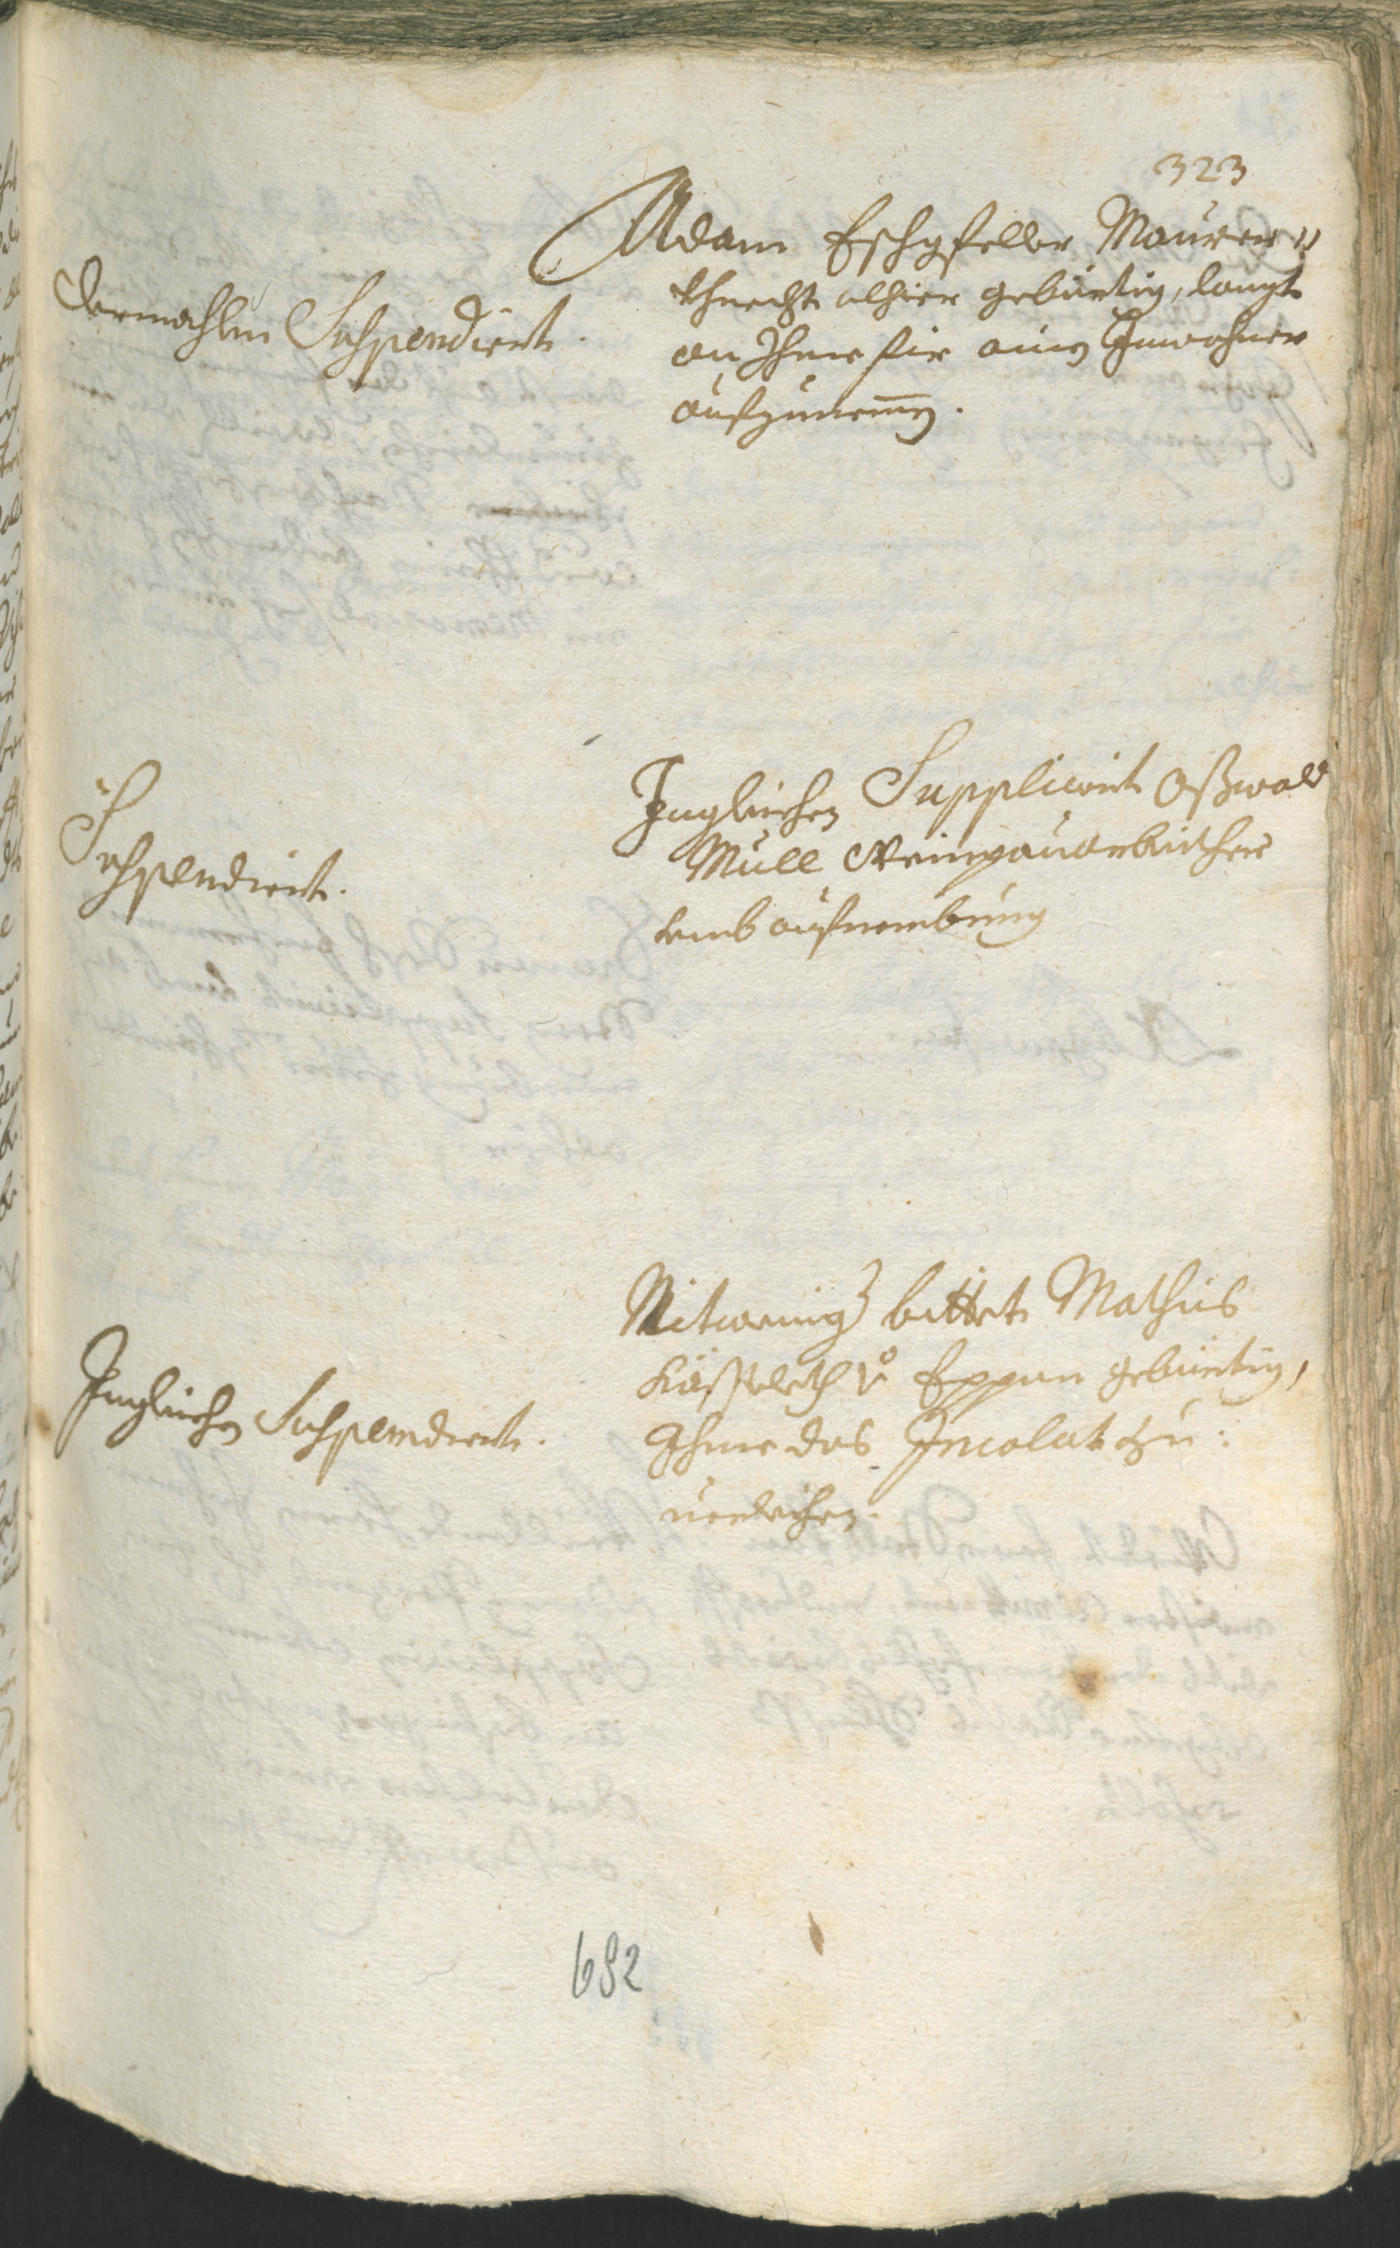 323
Adam Eschgfeller Maurer¬
khnecht alhier gebürtig, langt
an Ihne fir ainen Inwohner
aufzunemen.
Dermahlen Suspendiert.
Ingleichen Supplicirt Oßwald
Mull Weinpauarbeither
umb aufnembung
Suspendiert.
Mitwenig bittet Mathias
Käßlath v. Eppan gebürtig,
Ihme das Incolat zu:
uerleichen.
Ingleichen Suspendiert.
682